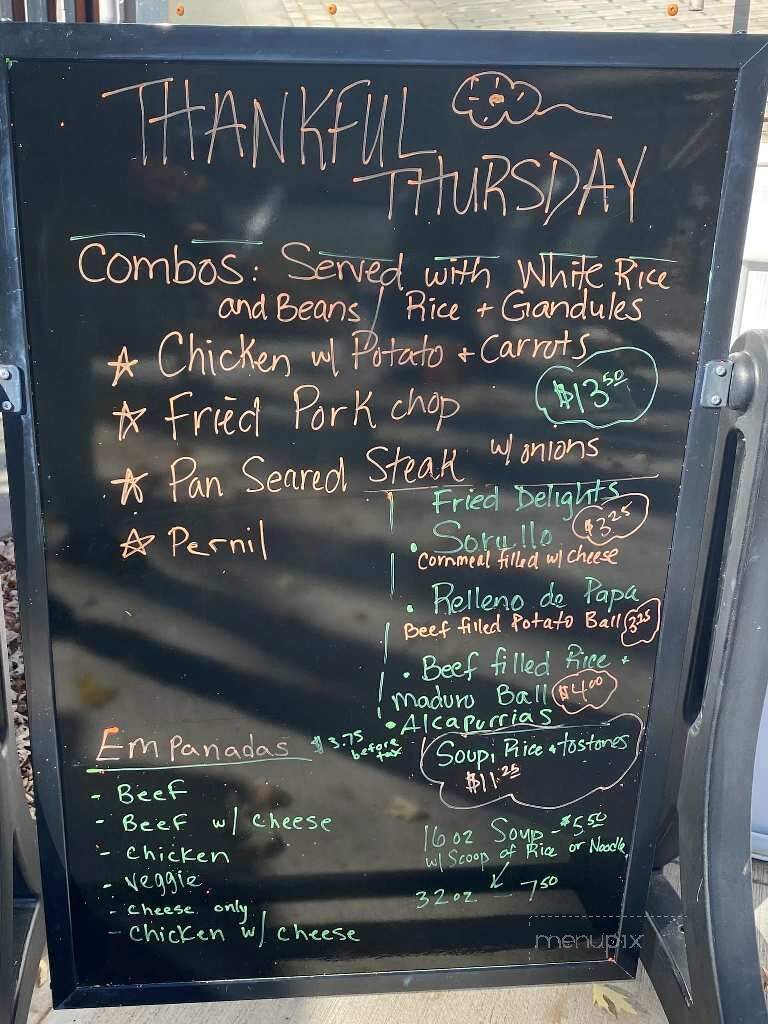 THANKFUL
THURSDAY
Combos: Served with White Rice
and Beans / Rice + Gandules
☆ Chicken w/ Potato + Carrots
$13.50
☆ Fried Pork chop
☆ Pan Seared Steak w/ onions
☆ Pernil
Fried Delights
• Sorullo $3.25
Cornmeal filled w/ Cheese
• Relleno de Papa
Beef filled Potato Ball 3.25
• Beef filled Rice +
maduro Ball $4.00
• Alcapurrias
Empanadas $3.75
before
tax
- Beef
- Beef w/ cheese
- chicken
- veggie
- cheese only
- Chicken w/ cheese
Soup, Rice + tostones
$11.25
16 oz Soup - $5.50
w/ Scoop of Rice or Noodle
32 oz - 7.50
menupix